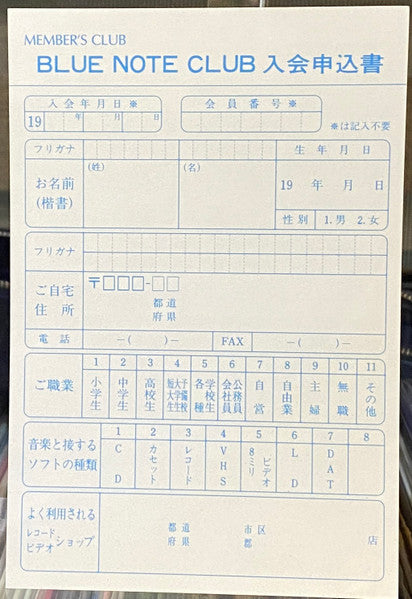 MEMBER'S CLUB
BLUE NOTE CLUB 入会申込書
入会年月日※
会員番号※
19 年 月 日
※は記入不要
フリガナ
生年月日
お名前
(楷書)
(姓)
(名)
19 年 月 日
性別 1.男 2.女
フリガナ
ご自宅
住所
〒□□□-□□
都道
府県
電話 −( )− FAX −( )−
ご職業
1 2 3 4 5 6 7 8 9 10 11
小学生
中学生
高校生
短大・大学生
予備校生
各種学校生
会社員
公務員
自営
自由業
主婦
無職
その他
音楽と接する
ソフトの種類
1 2 3 4 5 6 7 8
CD
カセット
レコード
VHS
8ミリビデオ
LD
DAT
よく利用される
レコード
ビデオ
ショップ
都道
府県
市区
郡
店